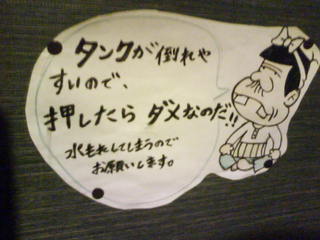 タンクが倒れや
すいので、
押したら ダメなのだ!!
水もれしてしまうので
お願いします。